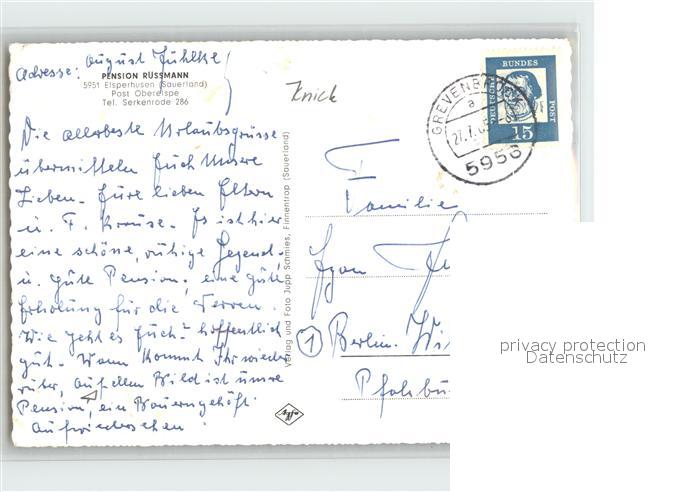 August Juhlke
Adresse:
PENSION RÜSSMANN
5951 Elsperhusen (Sauerland)
Post Oberelspe
Tel. Serkenrode 286
Knick
Die allerbeste Urlaubsgrüsse
übermitteln Euch Unsere
Lieben. Eure lieben Eltern
u. F. Krause. Es ist hier
eine schöne, ruhige Gegend,
u. gute Pension, eine gute
Erholung für die Nerven.
Wie geht es Euch? hoffentlich
gut. Wann kommt Ihr wieder
rüber, auf dem Bild ist unsre
Pension, ein Bauerngehöft
Aufwiedersehen
Verlag und Foto Jupp Schmies, Finnentrop (Sauerland)
DEUTSCHE
BUNDES
POST
15
GREVENBRÜCK
a
27.7.65
5956
Familie
Egon
1 Berlin. Wil
Pfalzbu
privacy protection
Datenschutz